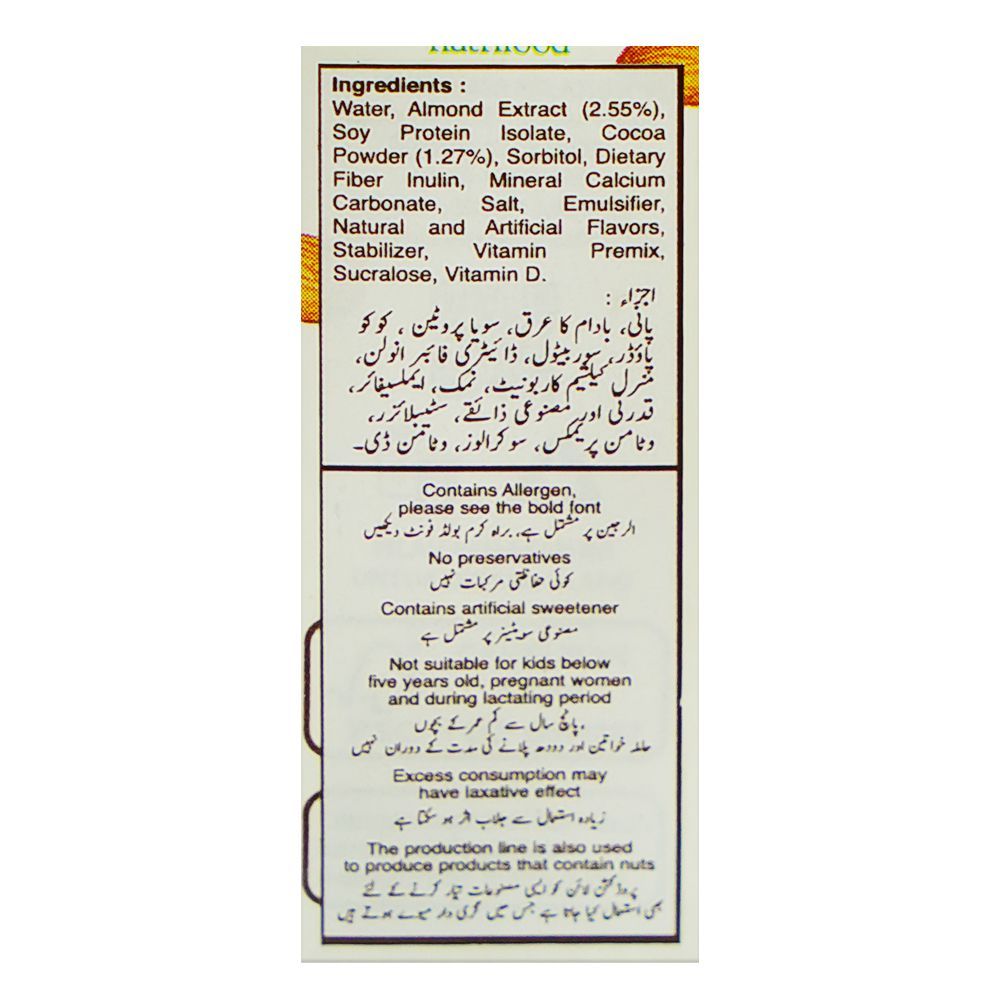 nutrifood
Ingredients :
Water, Almond Extract (2.55%),
Soy Protein Isolate, Cocoa
Powder (1.27%), Sorbitol, Dietary
Fiber Inulin, Mineral Calcium
Carbonate, Salt, Emulsifier,
Natural and Artificial Flavors,
Stabilizer, Vitamin Premix,
Sucralose, Vitamin D.
اجزاء :
پانی، بادام کا عرق، سویا پروٹین ، کوکو
پاؤڈر، سوربیٹول، ڈائیٹری فائبر انولن،
منرل کیلشیم کاربونیٹ، نمک، ایملسیفائر،
قدرتی اور مصنوعی ذائقے، سٹیبلائزر،
وٹامن پریمکس، سوکرالوز، وٹامن ڈی۔
Contains Allergen,
please see the bold font
الرجین پر مشتمل ہے، براہ کرم بولڈ فونٹ دیکھیں
No preservatives
کوئی حفاظتی مرکبات نہیں
Contains artificial sweetener
مصنوعی سویٹینر پر مشتمل ہے
Not suitable for kids below
five years old, pregnant women
and during lactating period
پانچ سال سے کم عمر کے بچوں،
حاملہ خواتین اور دودھ پلانے کی مدت کے دوران نہیں
Excess consumption may
have laxative effect
زیادہ استعمال سے جلاب اثر ہو سکتا ہے
The production line is also used
to produce products that contain nuts
پروڈکشن لائن کو ایسی مصنوعات تیار کرنے کے لئے
بھی استعمال کیا جاتا ہے جس میں گری دار میوے ہوتے ہیں